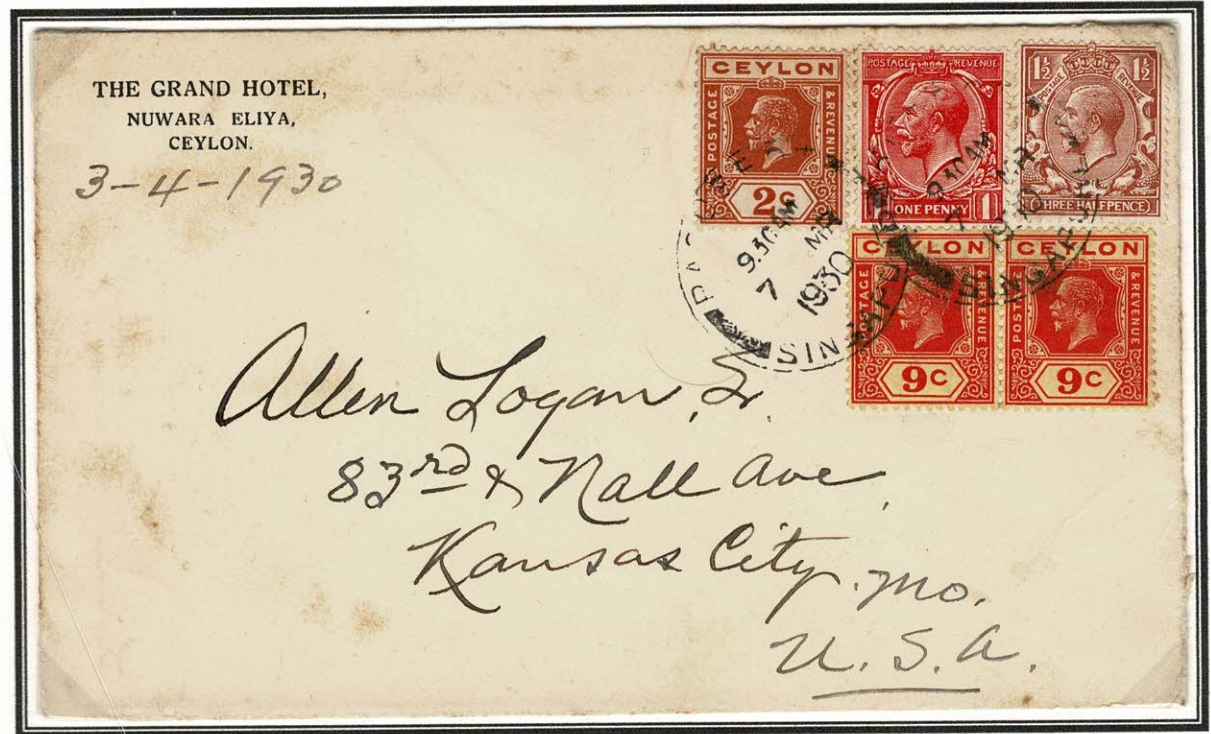 THE GRAND HOTEL,
NUWARA ELIYA,
CEYLON.
3-4-1930
CEYLON
POSTAGE & REVENUE
2c
POSTAGE REVENUE
ONE PENNY 1
1½ 1½
POSTAGE REVENUE
THREE HALFPENCE
CEYLON
POSTAGE & REVENUE
9c
CEYLON
POSTAGE & REVENUE
9c
9.30AM
7 MR
1930
SINGAPORE
9.30AM
7 MR
1930
SINGAPORE
Allen Logan, Sr.
83rd & Nall Ave,
Kansas City. Mo.
U. S. A.